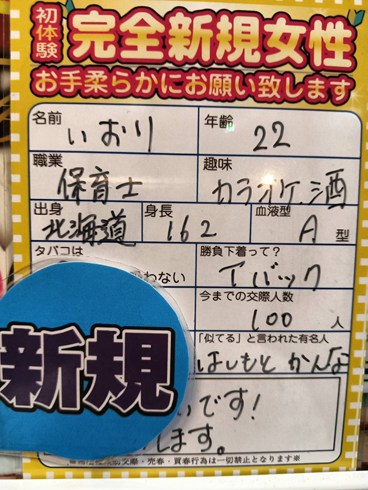 初体験
完全新規女性
お手柔らかにお願い致します
名前
いおり
年齢
22
職業
保育士
趣味
カラオケ、酒
出身
北海道
身長
162
血液型
A 型
タバコは
わない
勝負下着って?
Tバック
今までの交際人数
100 人
「似てる」と言われた有名人
はしもと かんな
新規
いです!
します。
売春・買春行為は一切禁止となります※